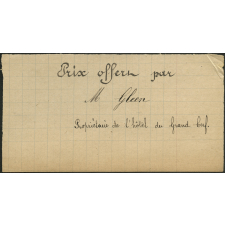 Prix offerts par
M Gleen
Propriétaire de l'hôtel du Grand Cerf.